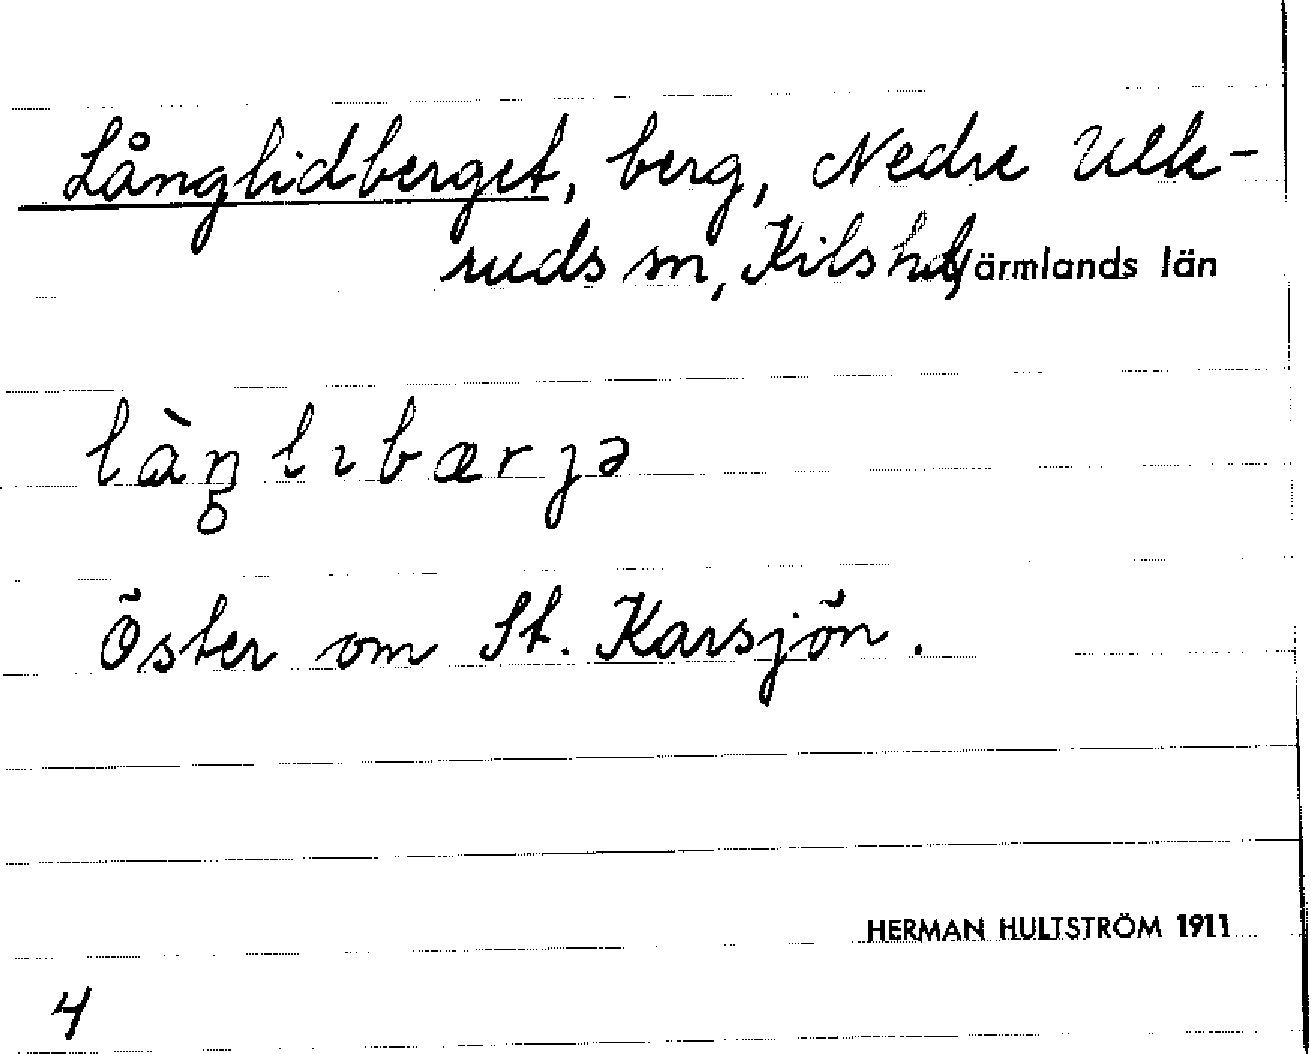 Långlidberget, berg, Nedre Ulle-
ruds sn, Kils hd, Värmlands län
làŋ̥lıbærɟə
Öster om St. Karsjön.
HERMAN HULTSTRÖM 1911
4